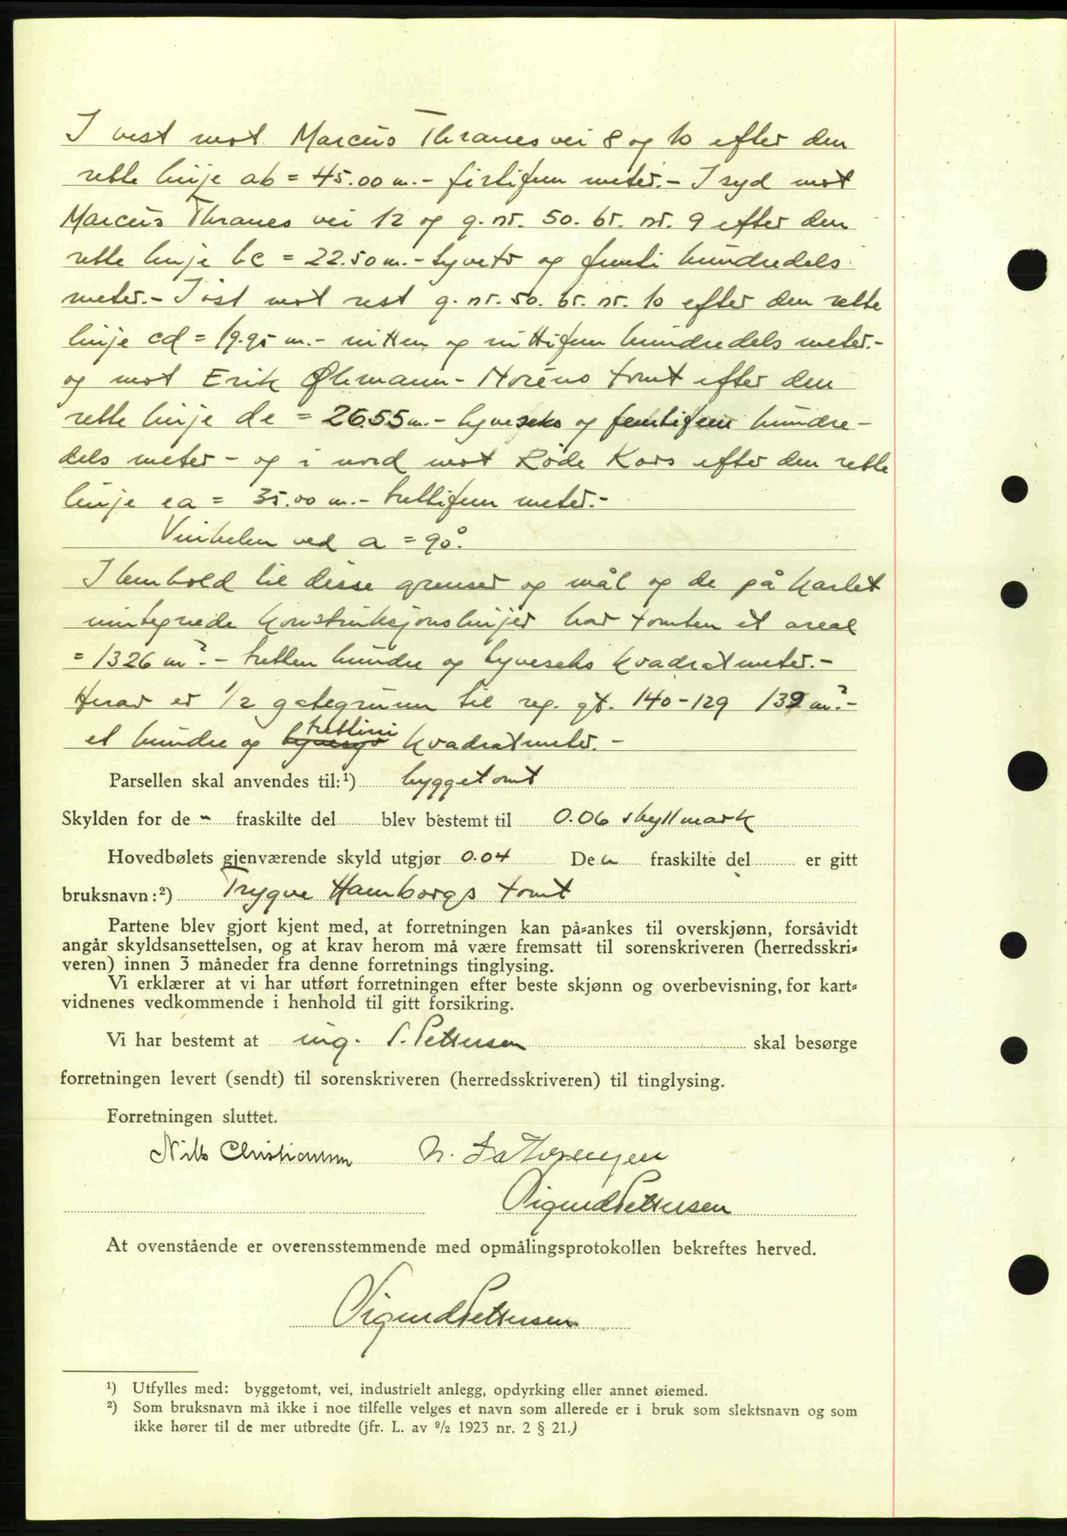 I vest mot Marcus Thranes vei 8 og 10 efter den
rette linje ab = 45.00 m.- førtifem meter.- I syd mot
Marcus Thranes vei 12 og g. nr. 50. br. nr. 9 efter den
rette linje bc = 22.50 m.- tyveto og femti hundredels
meter.- I øst mot rest g. nr. 50. br. nr. 10 efter den rette
linje cd = 19.95 m.- nitten og nittifem hundredels meter.-
og mot Erik Øhmann-Noréns tomt efter den
rette linje de = 26.55 m.- tyveseks og femtifem hundre-
dels meter - og i nord mot Røde Kors efter den rette
linje ea = 35.00 m.- trettifem meter.-
Vinkelen ved a = 90°.
I henhold til disse grenser og mål og de på kartet
inntegnede konstruksjonslinjer har tomten et areal
= 1326 m².- tretten hundre og tyveseks kvadratmeter.-
Herav er 1/2 gategrunn til reg. gt. 140-129 139 m².-
et hundre og trettini kvadratmeter.-
Parsellen skal anvendes til:¹) byggetomt
Skylden for de - fraskilte del blev bestemt til 0.06 skyllmark
Hovedbølets gjenværende skyld utgjør 0.04 Den fraskilte del er gitt
bruksnavn:²) Trygve Hamborgs tomt
Partene blev gjort kjent med, at forretningen kan på-ankes til overskjønn, forsåvidt
angår skyldsansettelsen, og at krav herom må være fremsatt til sorenskriveren (herredsskri-
veren) innen 3 måneder fra denne forretnings tinglysing.
Vi erklærer at vi har utført forretningen efter beste skjønn og overbevisning, for kart-
vidnenes vedkommende i henhold til gitt forsikring.
Vi har bestemt at ing. S. Pettersen skal besørge
forretningen levert (sendt) til sorenskriveren (herredsskriveren) til tinglysing.
Forretningen sluttet.
Nils Christiansen
Sigurd Pettersen
At ovenstående er overensstemmende med opmålingsprotokollen bekreftes herved.
Sigurd Pettersen
¹) Utfylles med: byggetomt, vei, industrielt anlegg, opdyrking eller annet øiemed.
²) Som bruksnavn må ikke i noe tilfelle velges et navn som allerede er i bruk som slektsnavn og som
ikke hører til de mer utbredte (jfr. L. av 9/2 1923 nr. 2 § 21.)